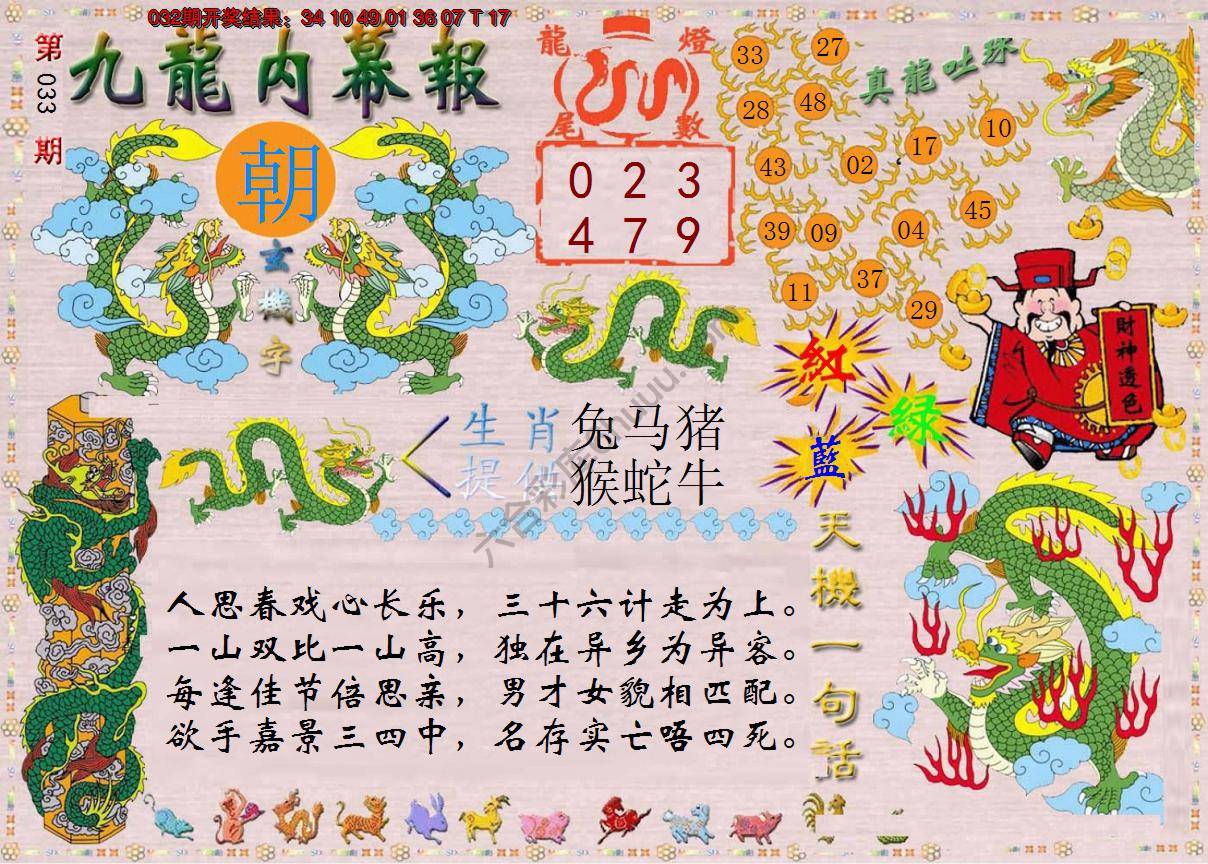 032期开奖结果：34 10 49 01 36 07 T 17
第033期
九龍内幕報
朝
玄機字
龍燈
尾數
0 2 3
4 7 9
真龍吐珠
33 27
28 48
43 02 17 10
39 09 04 45
11 37 29
財神透色
紅
綠
藍
生肖
提供
兔马猪
猴蛇牛
天機一句話
人思春戏心长乐，三十六计走为上。
一山双比一山高，独在异乡为异客。
每逢佳节倍思亲，男才女貌相匹配。
欲手嘉景三四中，名存实亡唔四死。